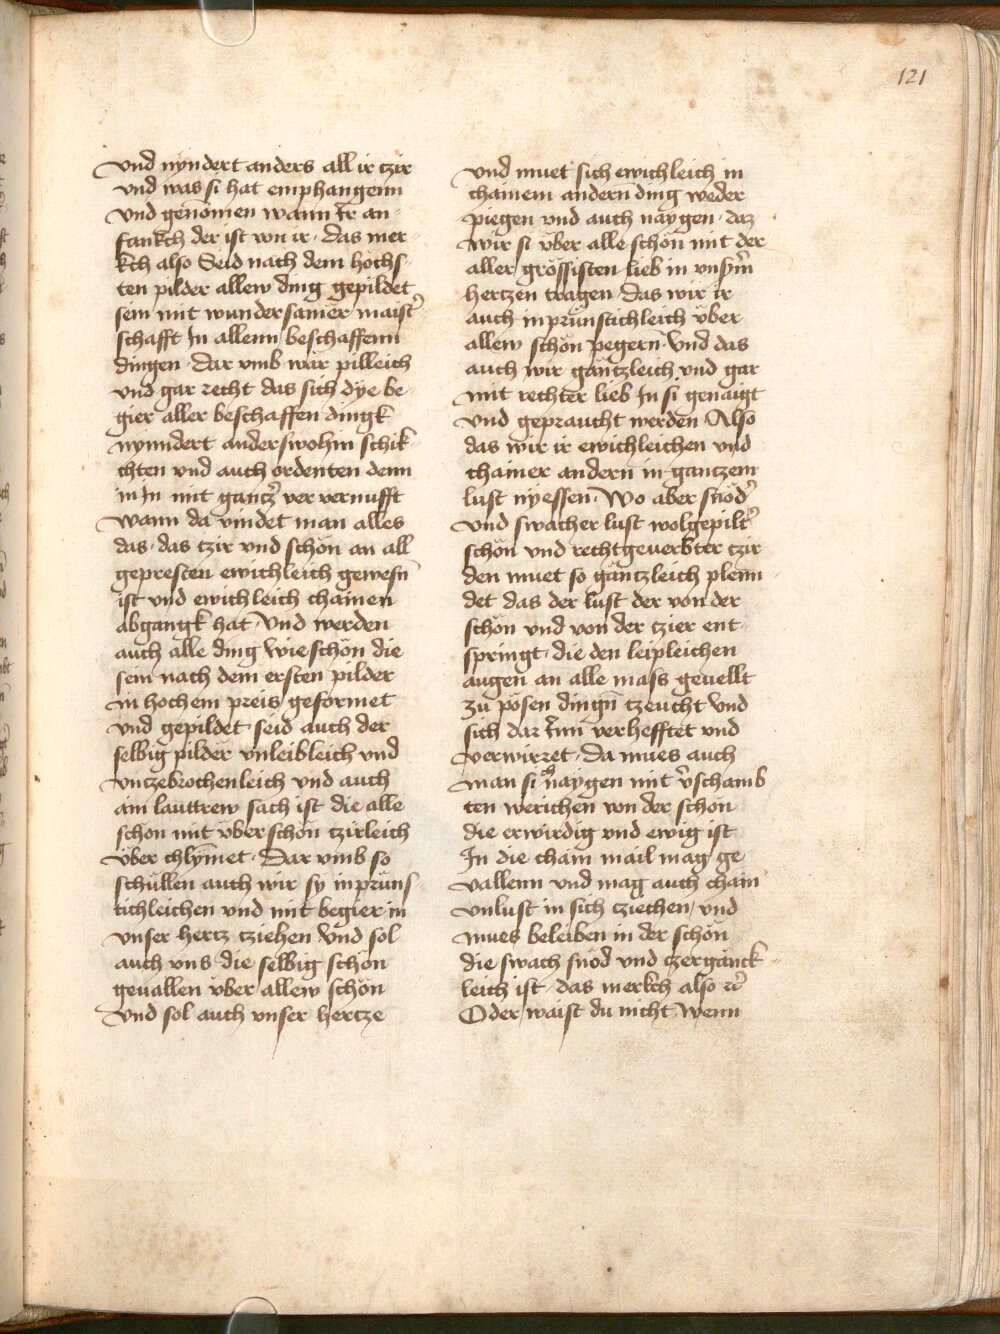 121
vnd nyndert anders all ir czir
vnd was si hat emphangenn
vnd genomen wann ir an
fankch der ist von ir · das mer
kch also Seid nach dem höchs
ten pilder allew ding gepildet
sein mit wundersamer maist̾
schafft In allenn beschaffenn
dingen · Dar vmb wär pilleich
vnd gar recht das sich dÿe be
gier aller beschaffen dingk
nynndert anderswohin schik
chten vnd auch ordenten denn
in In mit gantz̾ ver vernufft
wann da vindet man alles
das · das czir vnd schön an all
gepresten ewichleich gewesn̄
ist vnd ewichleich chainen
abgangk hat Vnd werden
auch alle ding wie schön die
sein nach dem ersten pilder
in hochem preis geformet
vnd gepildet seid auch der
selbig pilder vnleibleich vnd
vnczebrochenleich vnd auch
ain lauttrew sach ist die alle
schön mit vberschön tzirleich
über chlym̄et · Dar vmb so
schüllen auch wir sy inpruns
tichleichen vnd mit begier in
vnser hertz tziehen Vnd sol
auch vns die selbig schön
geuallen vber allew schön
Vnd sol auch vnser hertze
vnd muet sich ewichleich in
chainem andern ding weder
piegen vnd auch naygen · daz
wir si über alle schön mit der
aller grössisten lieb in vnsm̄
hertzen tragen Das wir ir
auch inprünstichleich über
allew schön pegern Vnd das
auch wir gäntzleich vnd gar
mit rechter lieb In si genaigt
vnd gepraucht werden Also
das wir ir ewichleichen vnd
chainer andern in gantzem
lust nyessen · Wo aber snöd̾
vnd swacher lust wolgepilt̾
schön vnd rechtgeuerbter czir
den muet so gäntzleich plenn
det das der lust der von der
schön vnd von der czier ent
springt · die den leipleichen
augen an alle mass geuellt
zu pösen dingn̄ tzeucht Vnd
sich dar Inn verhefftet vnd
verwirret · Da mues auch
man sich naygen mit v̾schamb
ten werichen von der schön
die erwirdig vnd ewig ist
In die chain mail mag ge
vallenn vnd mag auch chain
vnlust in sich cziechen / vnd
mues beleiben in der schön
die swach snöd vnd czergänck
leich ist · das merkch also
Oder waist du nicht Wenn